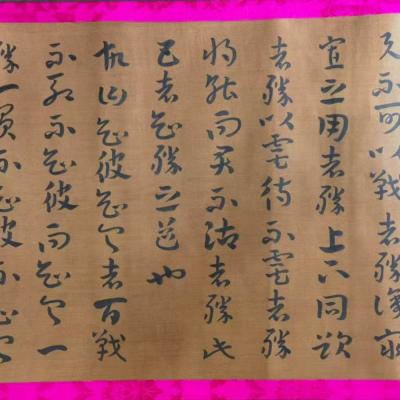 不可以戰者勝識衆
寡之用者勝上下同欲
者勝以虞待不虞者勝
將能而君不御者勝此
五者知勝之道也
故曰知彼知己者百戰
不殆不知彼而知己一
勝一負不知彼不知己